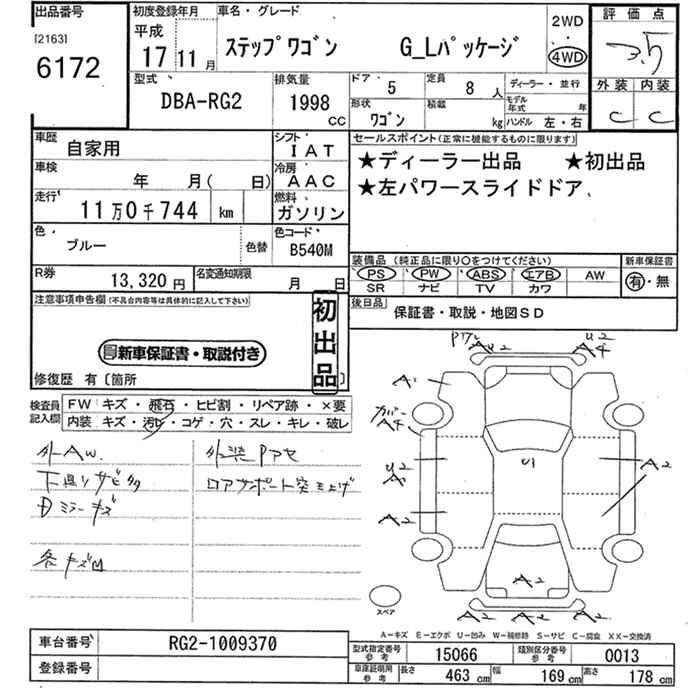 出品番号
[2163]
6172
初度登録年月
平成
17 11月
車名・グレード
ステップワゴン G_Lパッケージ
2WD
4WD
評価点
3.5
外装 内装
C C
型式
DBA-RG2
排気量
1998 CC
ドア 5
定員 8 人
ディーラー・並行
形状
ワゴン
積載 kg
モデル年式 年
ハンドル 左・右
車歴 自家用
シフト IAT
車検 年 月( 日)
冷房 AAC
走行 11万0千744 km
燃料 ガソリン
色 ブルー
色替
色コード B540M
R券 13,320円
名変通知期限 月 日
セールスポイント(正常に機能するものに限ります)
★ディーラー出品 ★初出品
★左パワースライドドア
装備品(純正品に限り○をつけてください)
PS PW ABS エアB AW
SR ナビ TV カワ
新車保証書
有・無
後日品 保証書・取説・地図SD
注意事項申告欄(不具合内容等は具体的に記入して下さい)
初出品
新車保証書・取説付き
修復歴 有〔箇所 〕
検査員記入欄
FW キズ・飛石・ヒビ割・リペア跡・×要
内装 キズ・汚レ・コゲ・穴・スレ・キレ・破レ
外AW.
下廻りサビ多
Dミラーキズ
各キズ凹
外装Pアセ
ロアサポート突上げ
A2
U2
A4
A1
カバー
A4
U1
U2
A1
A2
A2
A2
A2
A2
スペア
A-キズ E-エクボ U-凹み W-補修跡 S-サビ C-腐食 XX-交換済
車台番号 RG2-1009370
登録番号
型式指定番号 参考 15066
類別区分番号 参考 0013
車庫証明用 参考 長さ 463 cm 幅 169 cm 高さ 178 cm